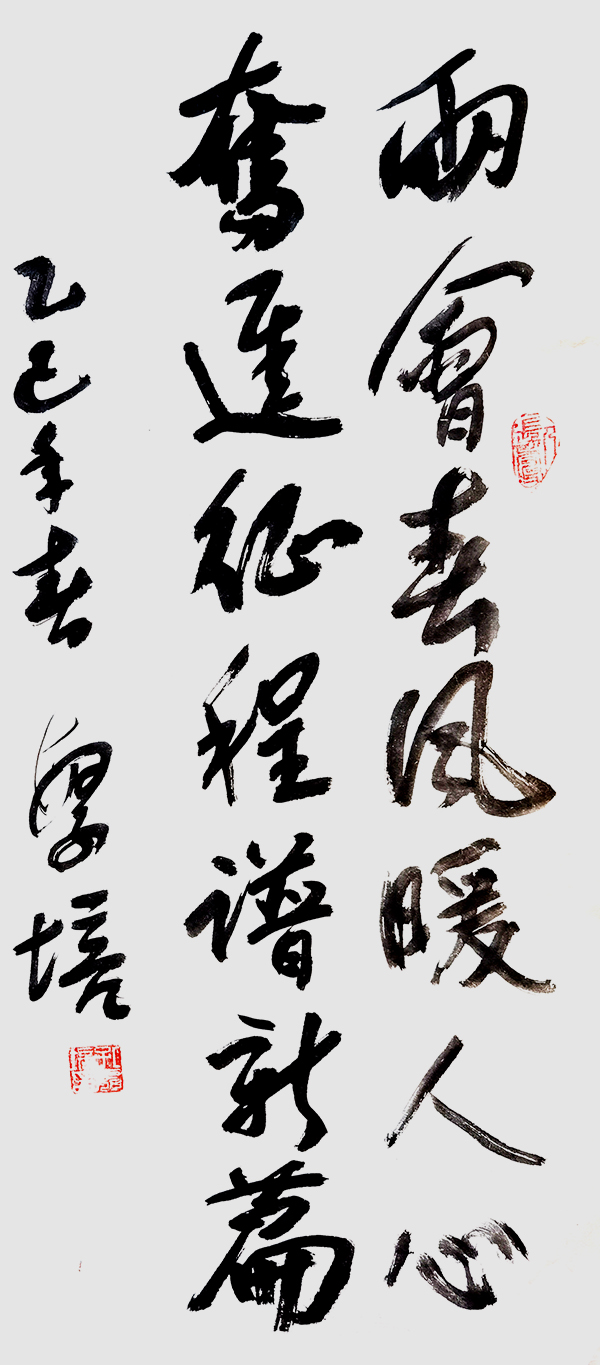 兩會春風暖人心
奮進征程譜新篇
乙巳年春 學培